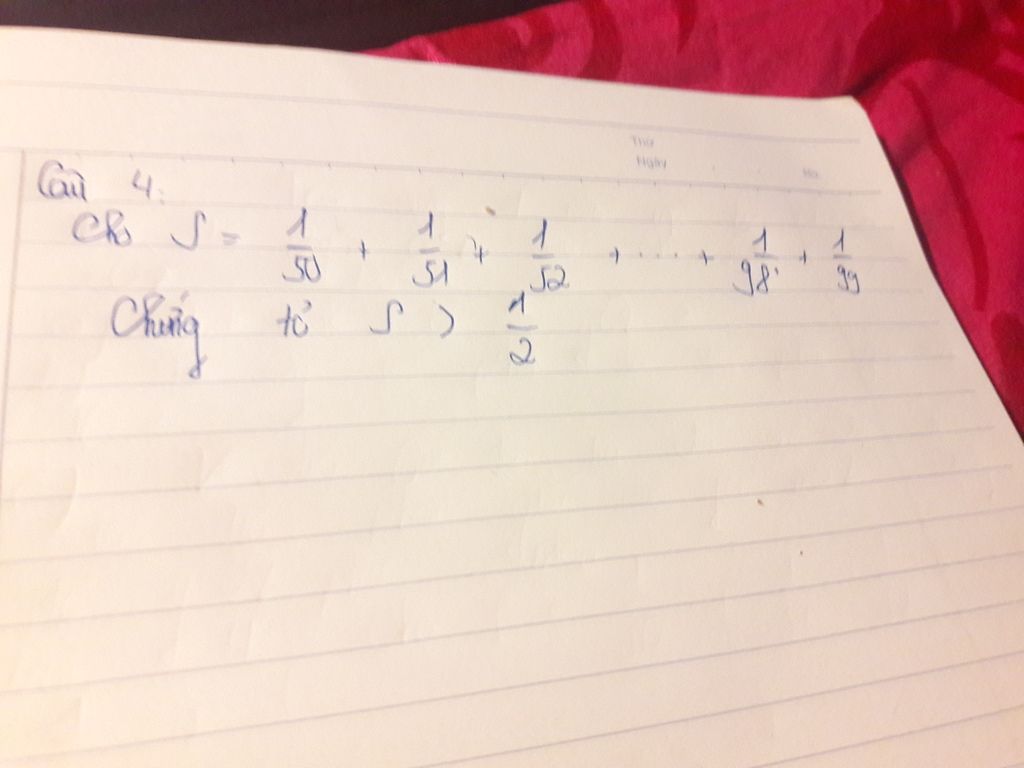 Thứ
Ngày
No.
Câu 4:
Cho S = 1/50 + 1/51 + 1/52 + .... + 1/98 + 1/99
Chứng tỏ S > 1/2